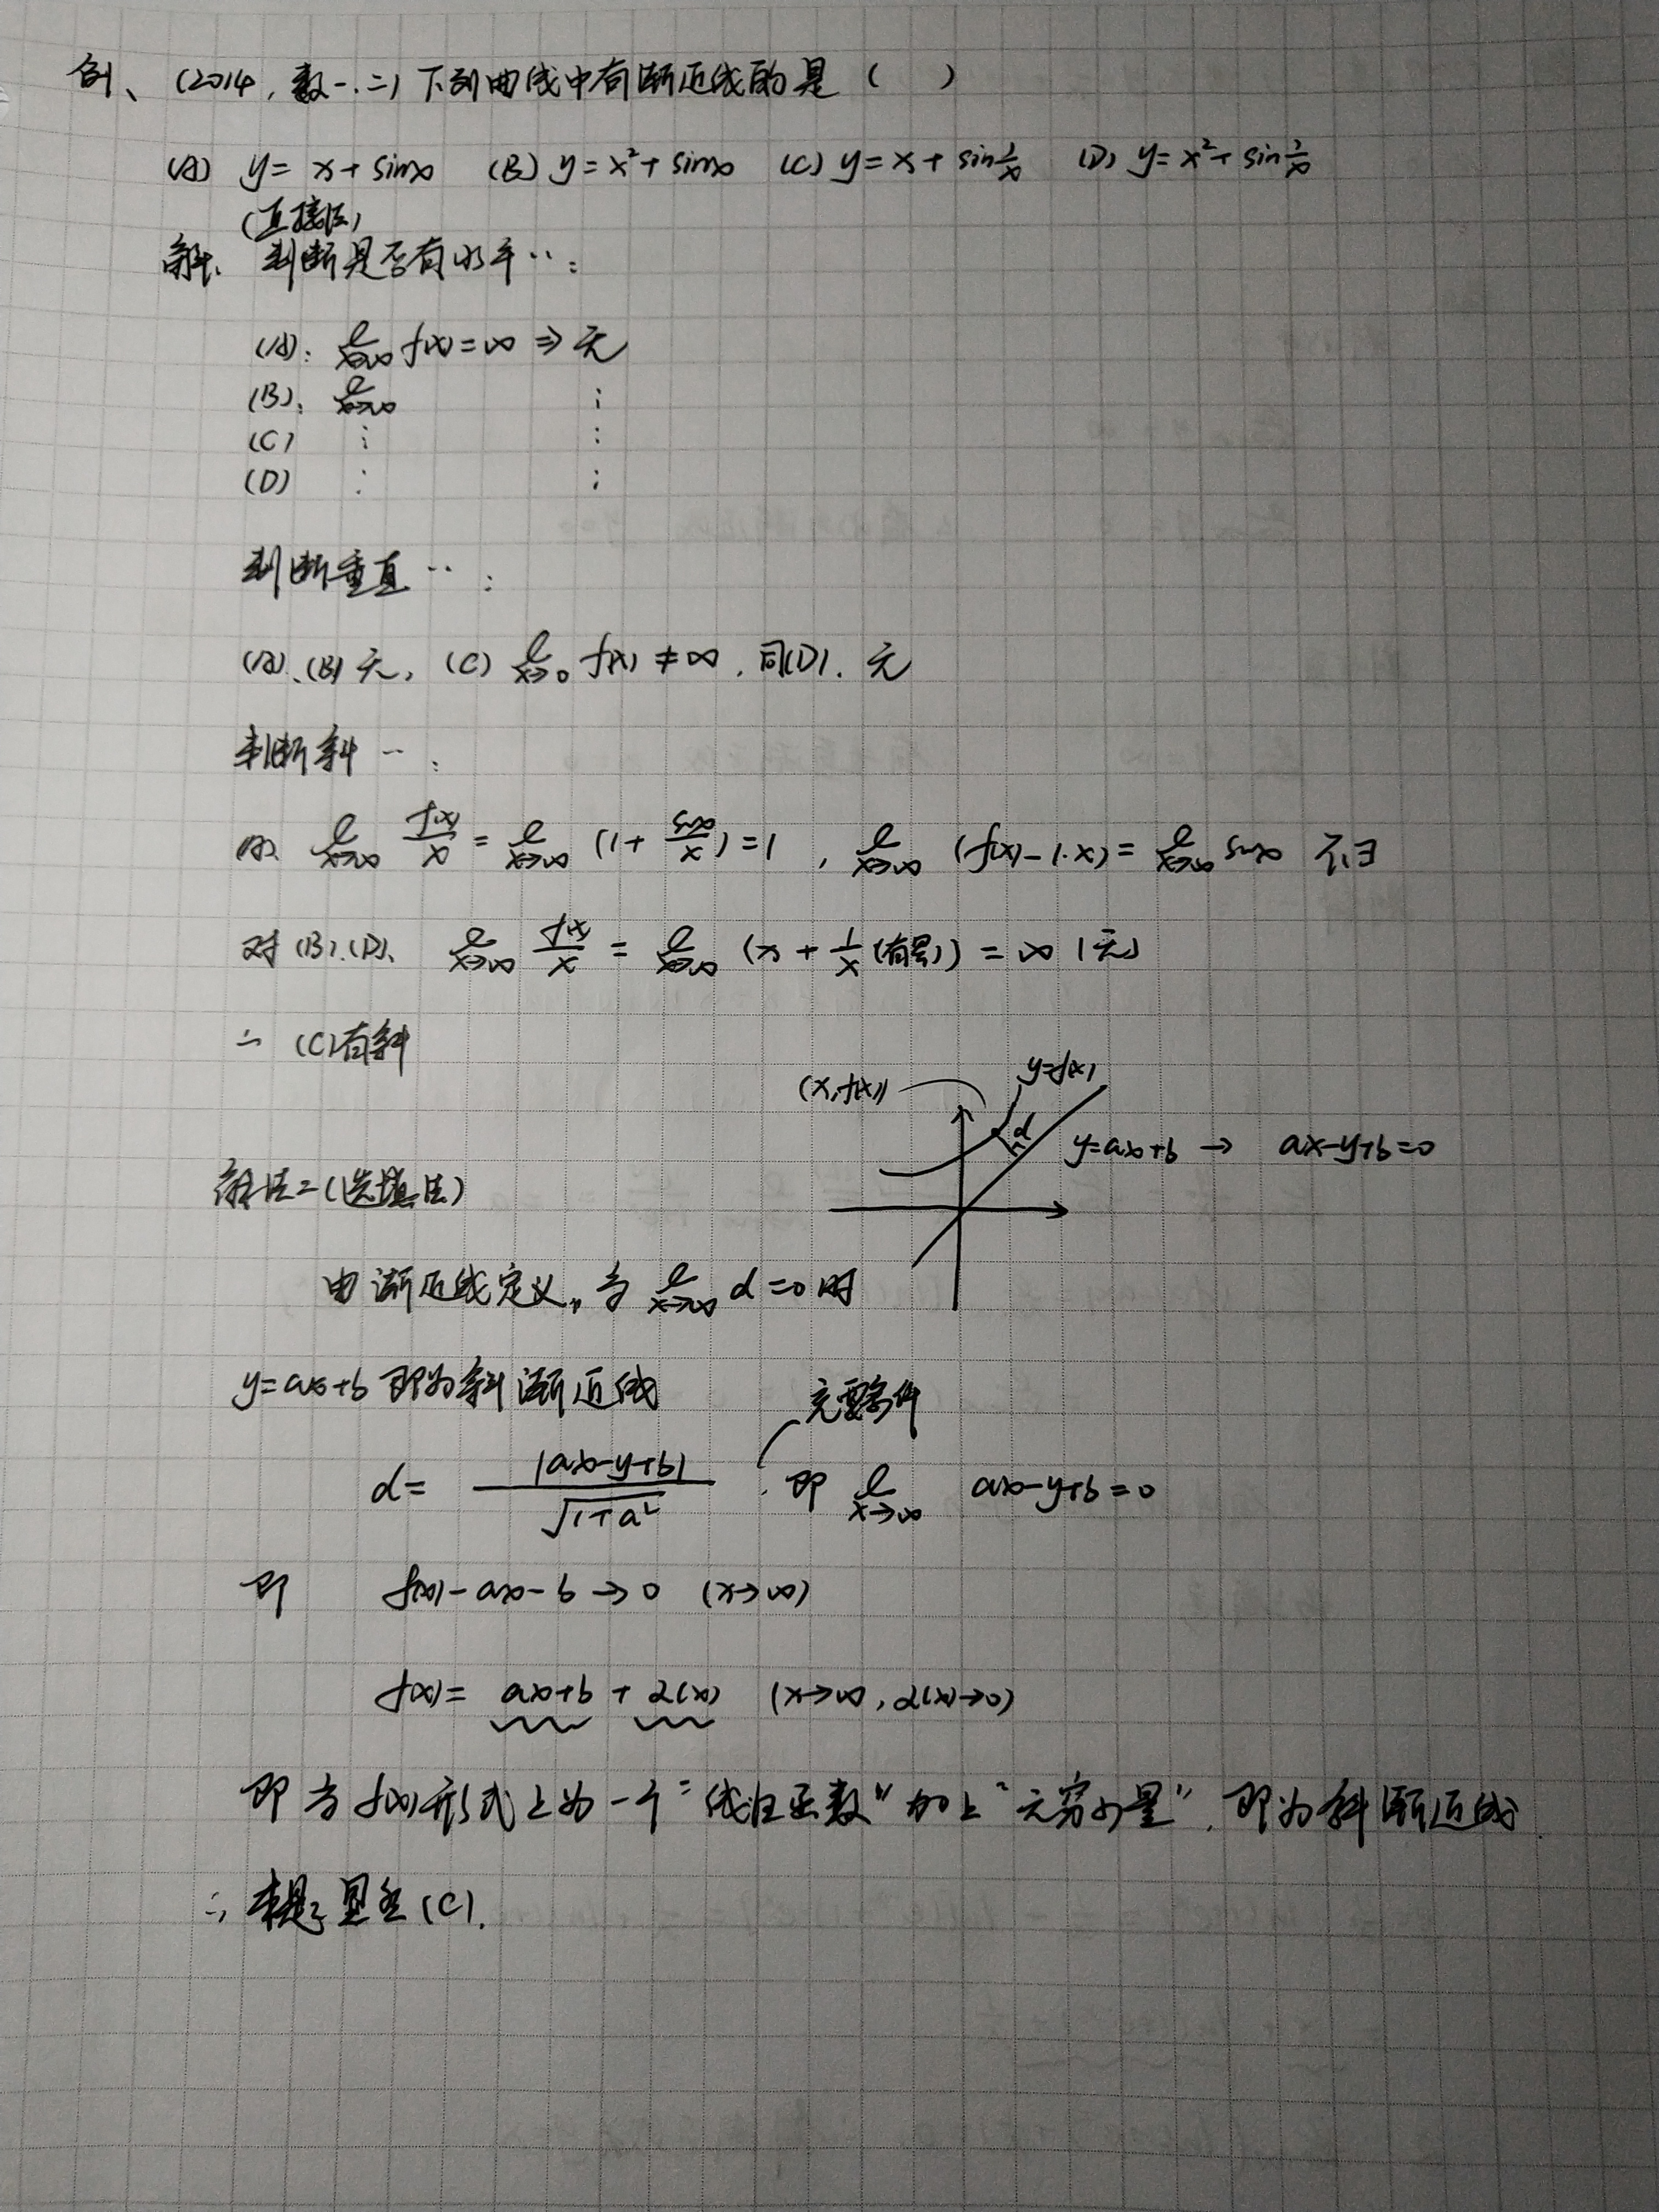 例、(2014,数一.二)下列曲线中有渐近线的是( )
(A) y=x+sinx (B) y=x²+sinx (C) y=x+sin1/x (D) y=x²+sin1/x
(直接法)
解、判断是否有水平‥:
(A): l x→∞ f(x)=∞ ⇒ 无
(B): l x→∞ ⋮
(C) ⋮ ⋮
(D) ⋮ ⋮
判断垂直‥:
(A)、(B)无,(C) l x→0 f(x)≠∞,同(D).无
判断斜‥:
(A)、l x→∞ f(x)/x = l x→∞ (1+sinx/x)=1, l x→∞ (f(x)-1·x)= l x→∞ sinx 不∃
对(B).(D)、l x→∞ f(x)/x = l x→∞ (x+1/x(有界))=∞(无)
∴ (C)有斜
(x,f(x)) y=f(x)
d
y=ax+b → ax-y+b=0
解法二(选填法)
由渐近线定义,当 l x→∞ d=0时
y=ax+b 即为斜渐近线
充要条件
d= |ax-y+b|/√1+a² .即 l x→∞ ax-y+b=0
即 f(x)-ax-b→0 (x→∞)
f(x)= ax+b + α(x) (x→∞,α(x)→0)
即当f(x)形式上为一个"线性函数"加上"无穷小量".即为斜渐近线.
∴ 本题显然(C).